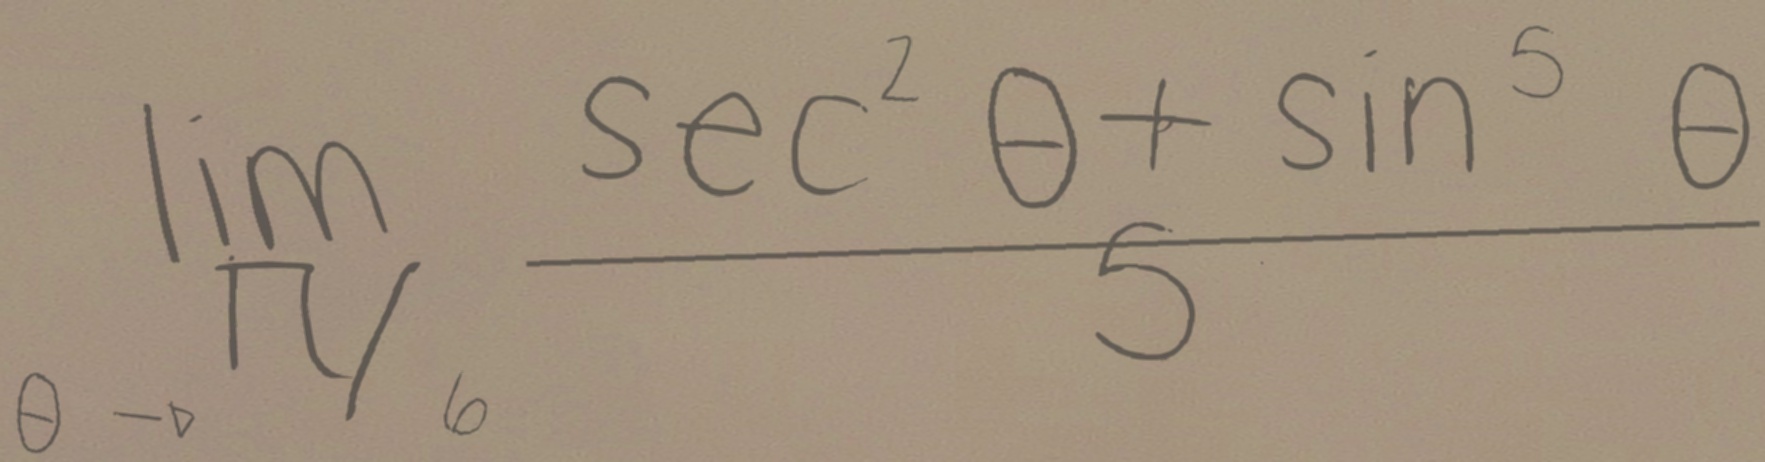 lim θ→π/6 (sec² θ + sin⁵ θ)/5